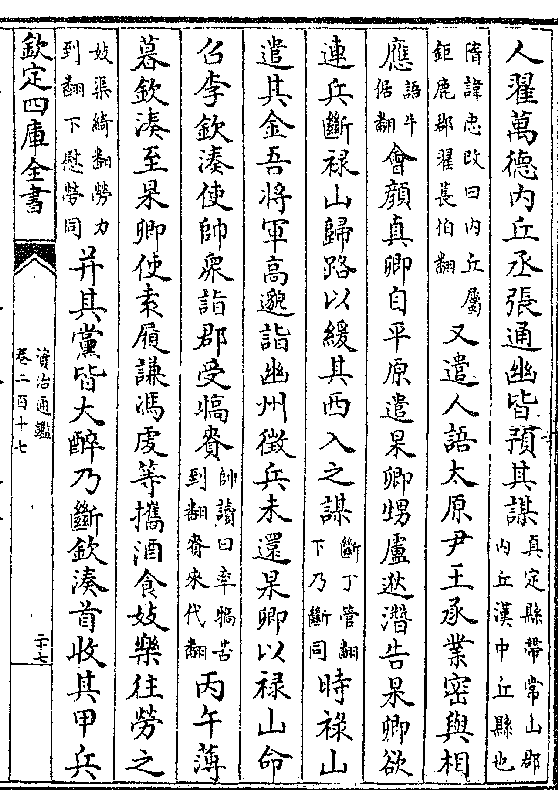 人翟萬德内丘丞張通幽皆預其謀真定縣帶常山郡内丘漢中丘縣也
隋諱忠改曰内丘屬鉅鹿郡翟萇伯翻又遣人語太原尹王承業密與相
應語牛倨翻會顔真卿自平原遣杲卿甥盧逖潛告杲卿欲
連兵斷禄山歸路以緩其西入之謀斷丁管翻下乃斷同時禄山
遣其金吾將軍高邈詣幽州徵兵未還杲卿以禄山命
召李欽湊使帥衆詣郡受犒賚帥讀曰率犒苦到翻賚來代翻丙午薄
暮欽湊至杲卿使袁履謙馮虔等攜酒食妓樂往勞之
妓渠綺翻勞力到翻下慰勞同并其黨皆大醉乃斷欽湊首收其甲兵
欽定四庫全書
資治通鑑
卷二百十七
二十七